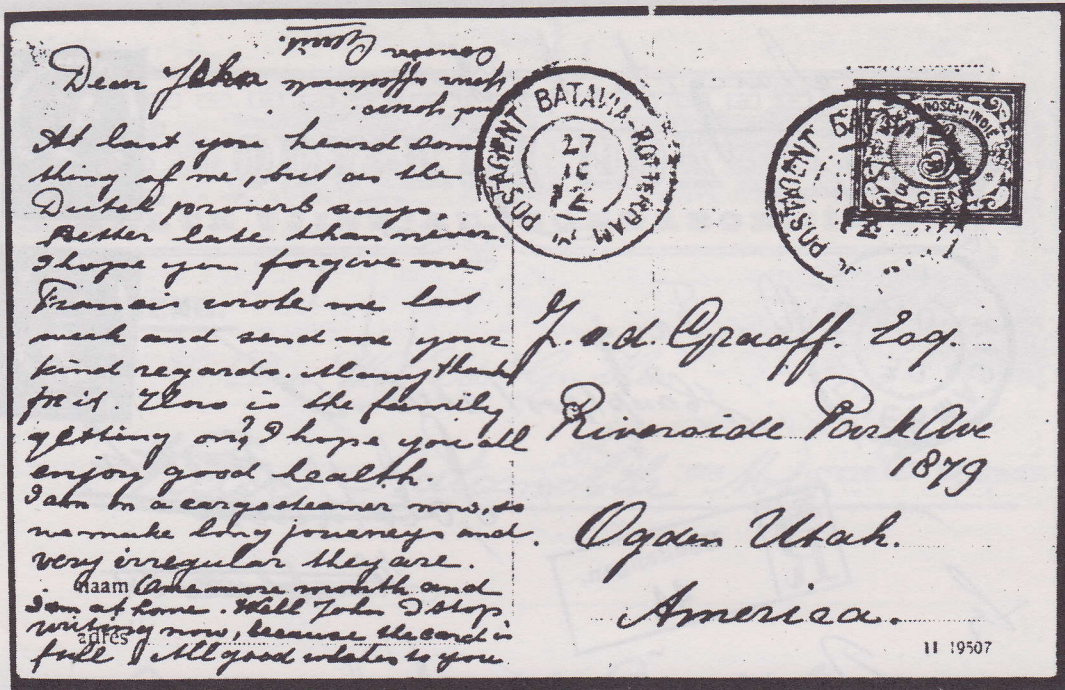 Dear John
At last you heard some
thing of me, but as the
Dutch proverb says,
Better late than never.
I hope you forgive me
Francis wrote me last
week and send me your
kind regards. Many thanks
for it. How is the family
getting on? I hope you all
enjoy good health.
I am on a cargosteamer now, so
we make long journeys and
very irregular they are.
naam One more month and
I am at home. Well John I stop
writing now, because the card is
adres
full. All good wishes to you
and yours.
from affectionate
POSTAGENT BATAVIA-ROTTERDAM
27
12
POSTAGENT BATAVIA
CENT
J. v. d. Graaff. Esq.
Riverside Park Ave
1879
Ogden Utah.
America.
11 19507